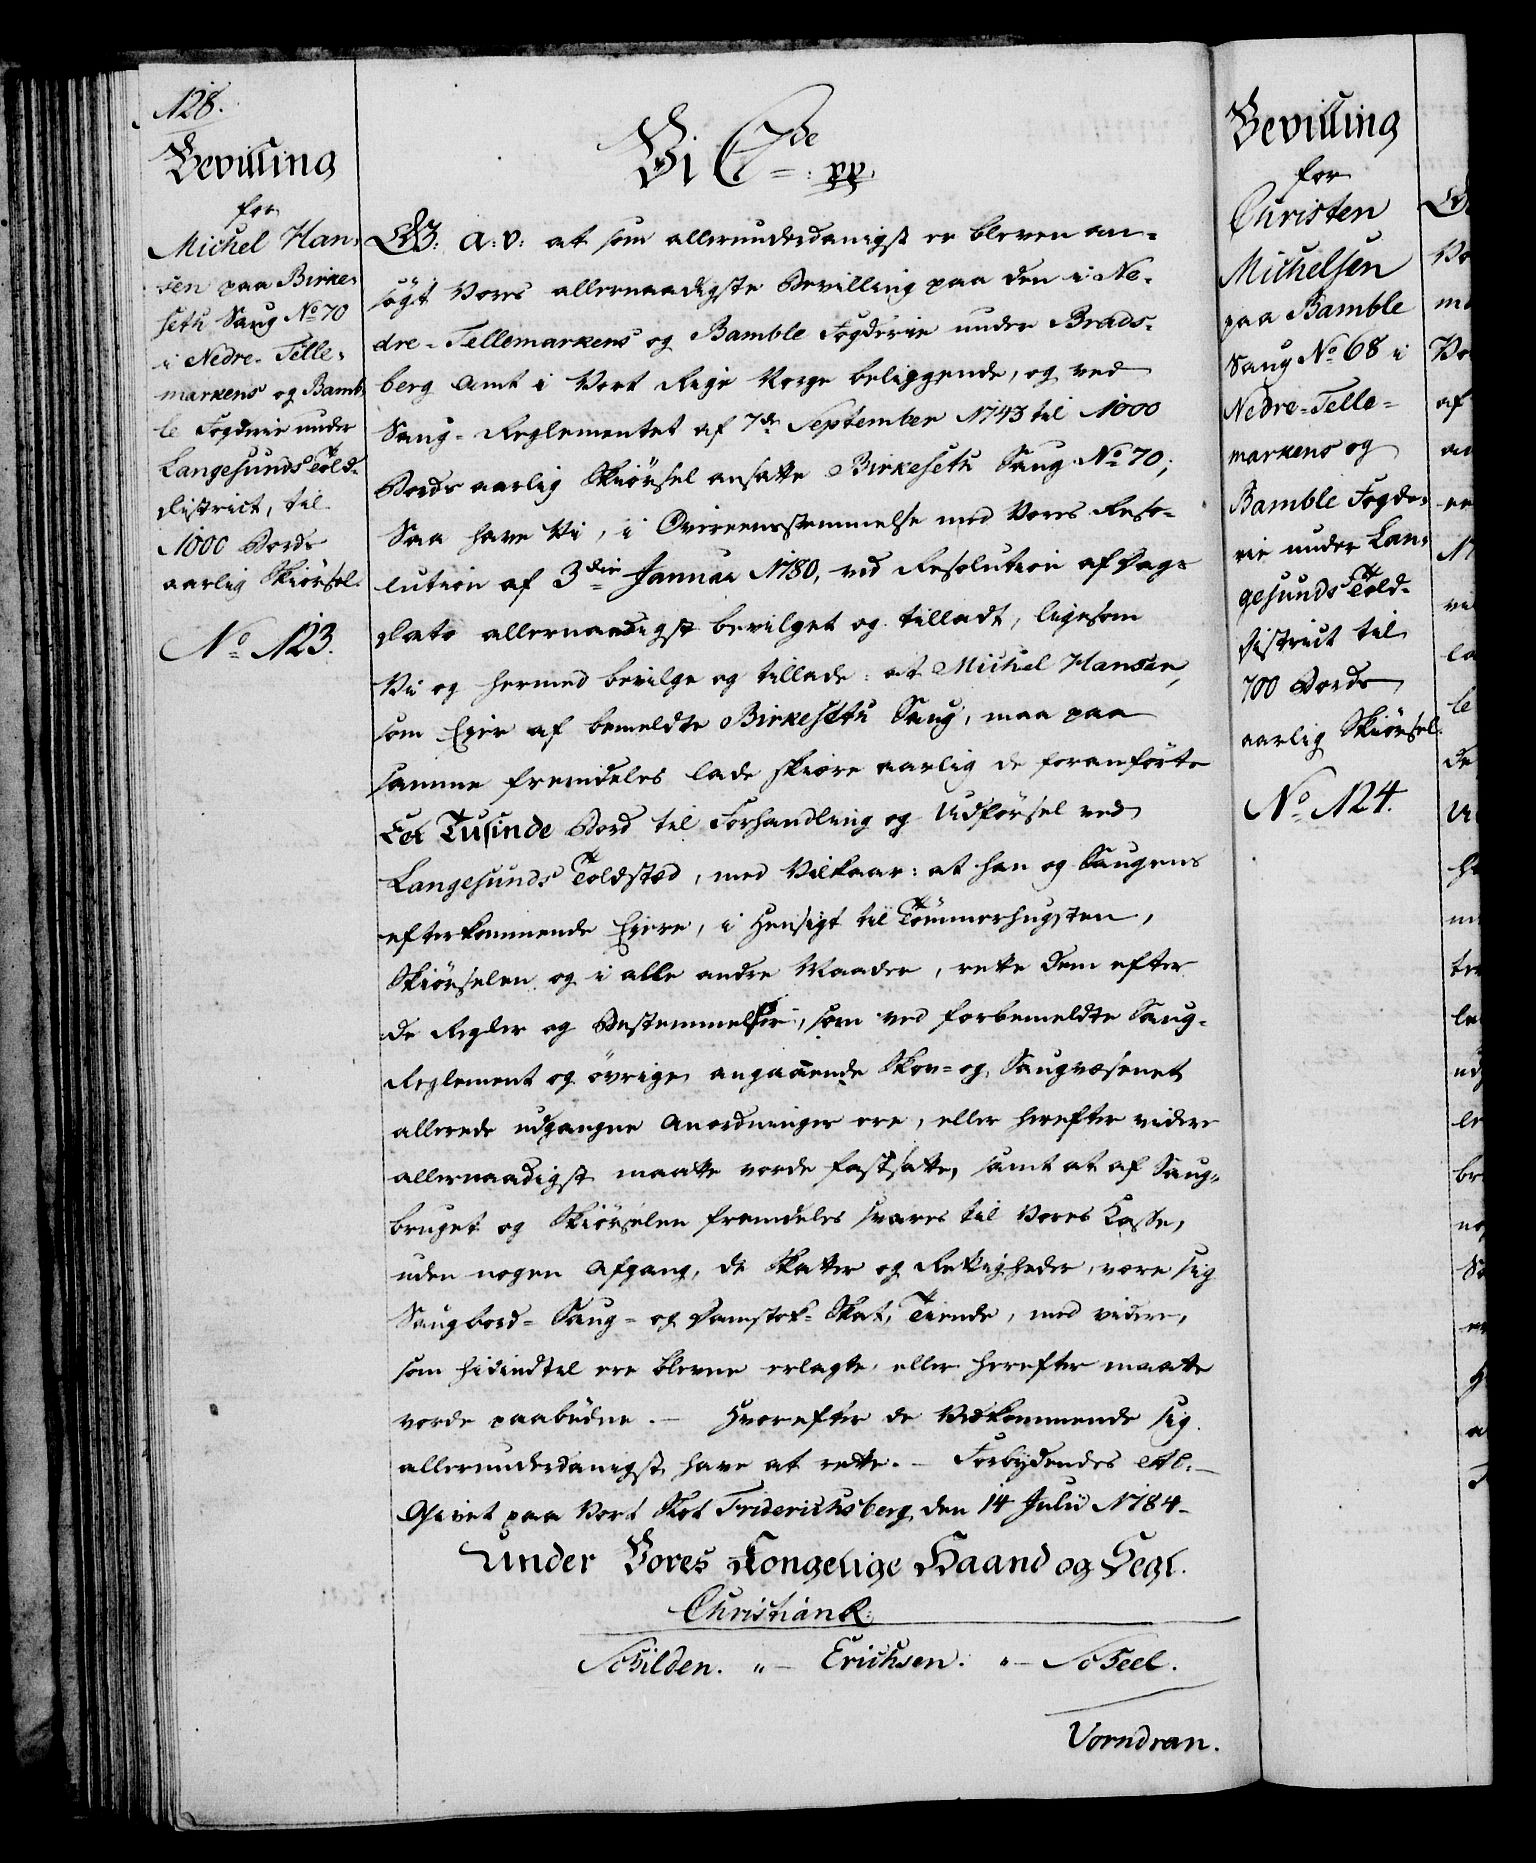 128.
Bevilling
for
Michel Han-
sen paa Birke-
seth Saug No 70
i Nedre-Telle-
markens og Bamb-
le Fogderie under
Langesunds Told-
district, til
1000 Bords
aarlig Skiørsel.
No 123.
Vi C 7de pp.
G: A: V: at som allerunderdanigst er bleven an-
søgt Vores allernaadigste Bevilling paa den i Ne-
dre-Tellemarkens og Bamble Fogderie under Brads-
berg Amt i Vort Rige Norge beliggende, og ved
Saug-Reglementet af 7de September 1743 til 1000
Bords aarlig Skiørsel ansatte Birkeseth Saug No 70;
Saa have Vi, i Overeensstemmelse med Vores Reso-
lution af 3die Januar 1780, ved Resolution af Dags
Dato allernaadigst bevilget og tilladt, ligesom
Vi og hermed bevilge og tillade: at Michel Hansen,
som Eier af bemeldte Birkeseth Saug, maa paa
samme fremdeles lade skiøre aarlig de foranførte
Eet Tusinde Bord til Forhandling og Udførsel ved
Langesunds Toldsted, med Vilkaar: at han og Saugens
efterkommende Eiere, i Hensigt til Tømmerhugsten,
Skiørselen og i alle andre Maader, rette dem efter
de Regler og Bestemmelser, som ved forbemeldte Saug-
Reglement og øvrige angaaende Skov- og Saugvæsenet
allerede udgangne Anordninger ere, eller herefter videre
allernaadigst maatte vorde fastsatte, samt at af Saug-
bruget og Skiørselen fremdeles svares til Vores Casse,
uden nogen Afgang, de Skatter og Rettigheder, være sig
Saugbord- Saug- og Damstok- Skat, Tiende, med videre,
som hidindtil ere blevne erlagte, eller herefter maatte
vorde paabudne. — Hvorefter de Vedkommende sig
allerunderdanigst have at rette. — Forbydendes etc. —
Givet paa Vort Slot Friderichsberg den 14 Julii 1784 –
Under Vores Kongelige Haand og Segl.
Christian R.
Schilden. „ — Erichsen. „ — Scheel.
Vorndran.
Bevilling
for
Christen
Michelsen
paa Bamble
Saug No 68 i
Nedre-Telle-
markens og
Bamble Fogde-
rie under Lan-
gesunds Told-
district til
700 Bords
aarlig Skiørsel.
No 124.